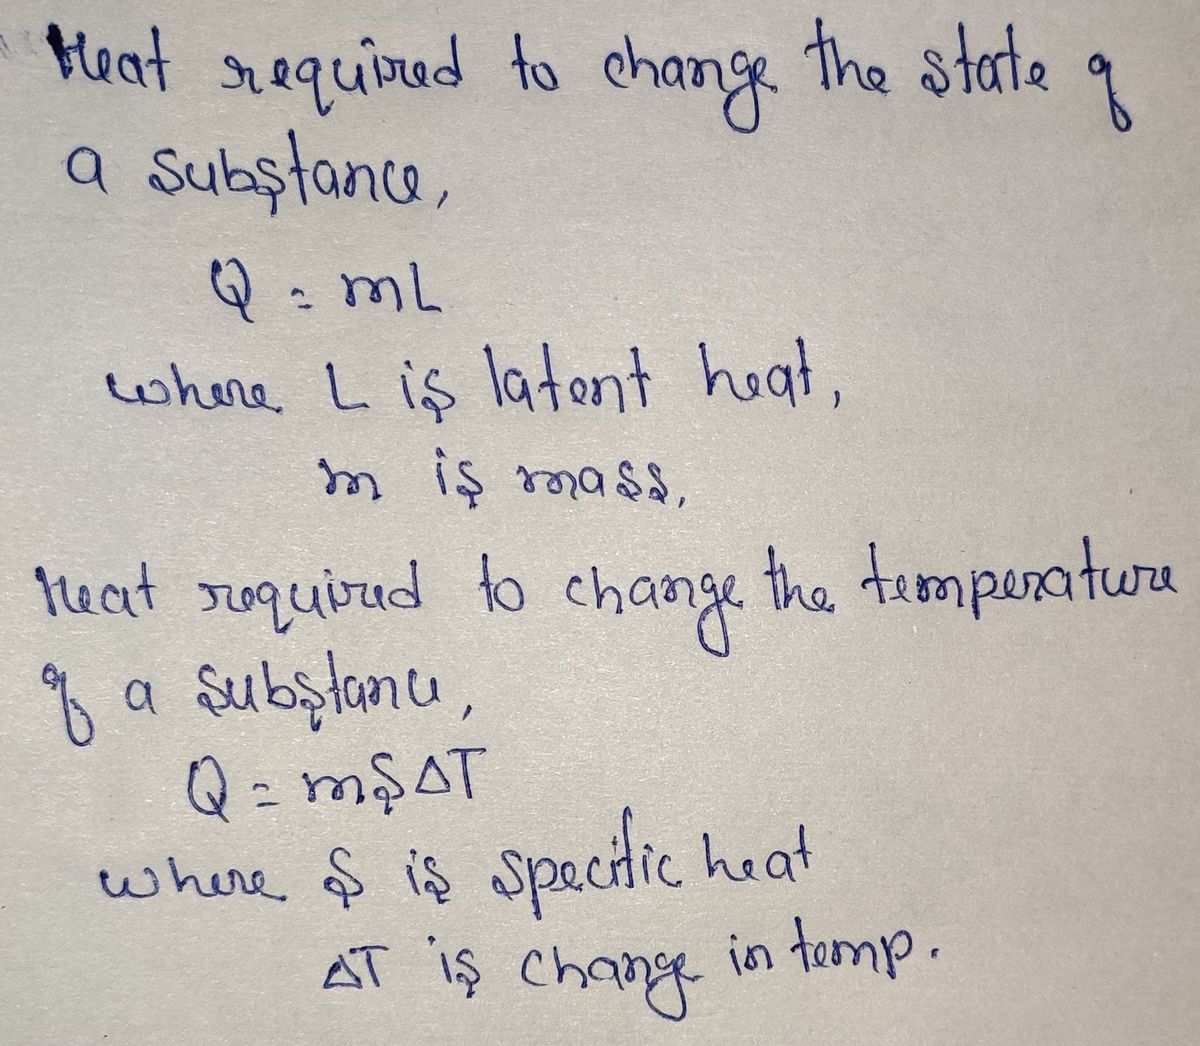 Heat required to change the state of
a substance,
Q = mL
where L is latent heat,
m is mass,
Heat required to change the temperature
of a substance,
Q = mSΔT
where S is specific heat
ΔT is change in temp.